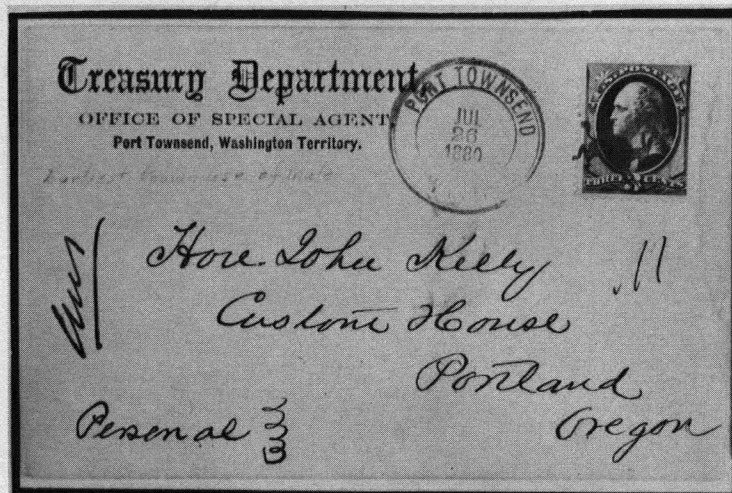 Treasury Department
OFFICE OF SPECIAL AGENT
Port Townsend, Washington Territory.
PORT TOWNSEND
JUL
26
1880
THREE CENTS
Earliest known use of
Ans
Hon. John Kelly
Custom House
Portland
Oregon
Personal